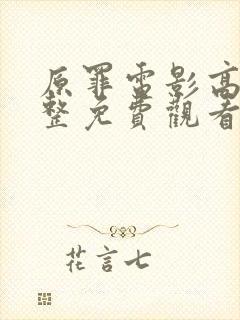 原罪電影高
整免費觀看
花言七